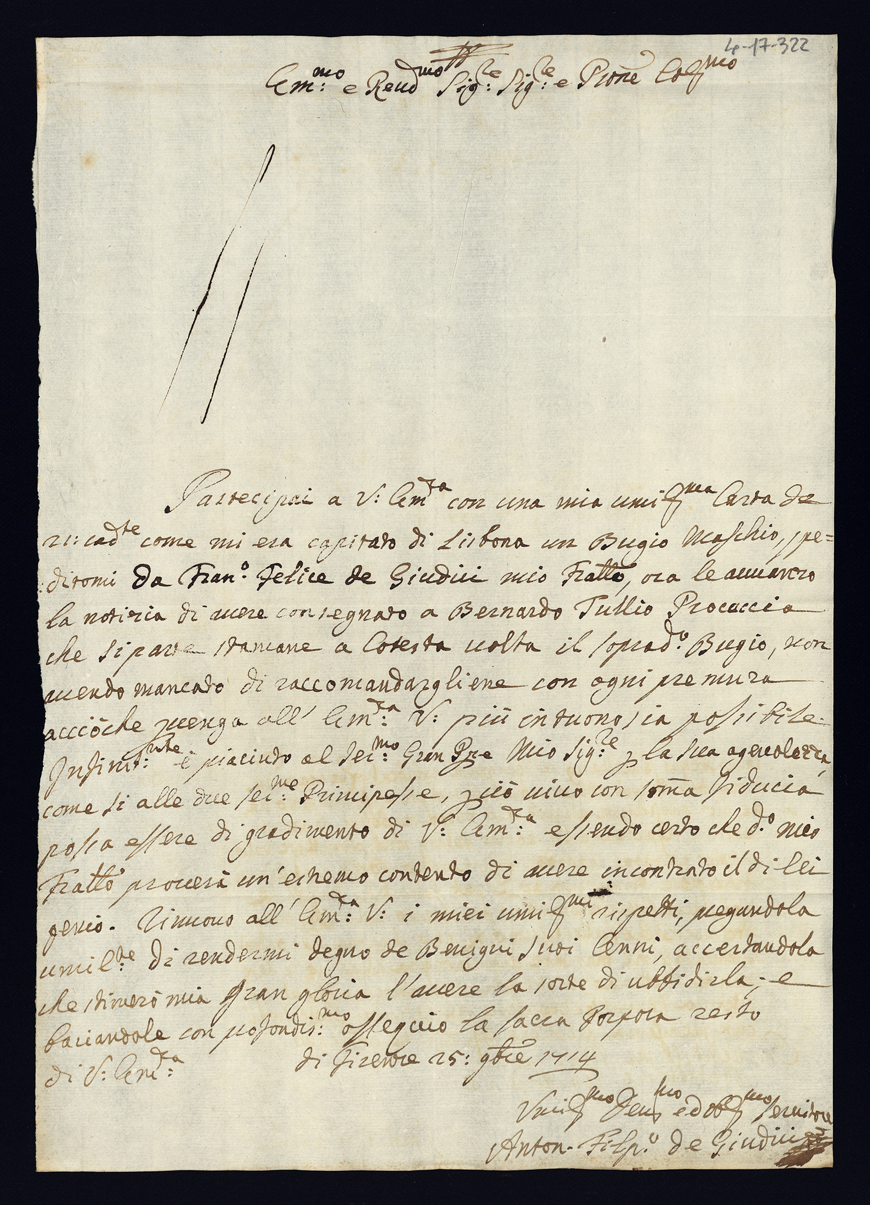 4-17-322
Em:mo e Revd:mo Sig:re Sig:re e Prone Col:mo
Partecipai a V: Em:za con una mia umil:ma Carta de
21: cad:te come mi era capitato di Lisbona un Bugio Maschio, spe=
ditomi da Fran:o Felice de Giudici mio Fratto, ora le avanzo
la notizia di avere consegnato a Bernardo Tullio Procaccia
che si parte stamane a Cotesta volta il soprad:o Bugio, non
avendo mancado di raccomandargliene con ogni premura
acciòche venga all' Em:za V: più in tuono sia possibile.
Infinit:nte è piaciuto al Ser:mo Gran Pre Mio Sig:re p la sua agevolezza,
come si alle due Ser:me Principesse, p ciò vivo con soma fiducia
possa essere di gradimento di V: Em:za essendo certo che d:o mio
Fratto proverà un' estremo contento di avere incontrato il di lei
genio. Rinuovo all' Em:za V: i miei umil:mi rispetti, pregandola
umil:te di rendermi degno de Benigni suoi Cenni, accertandola
che stimerò mia gran gloria l'avere la sorte di ubbidirla; e
baciandole con profondis:mo ossequio la sacra Porpora resto
di V: Em:za di Firenze 25: gbre 1714
Umil:mo Dev:mo ed obl:mo servitore
Anton. Filip:o de Giudici